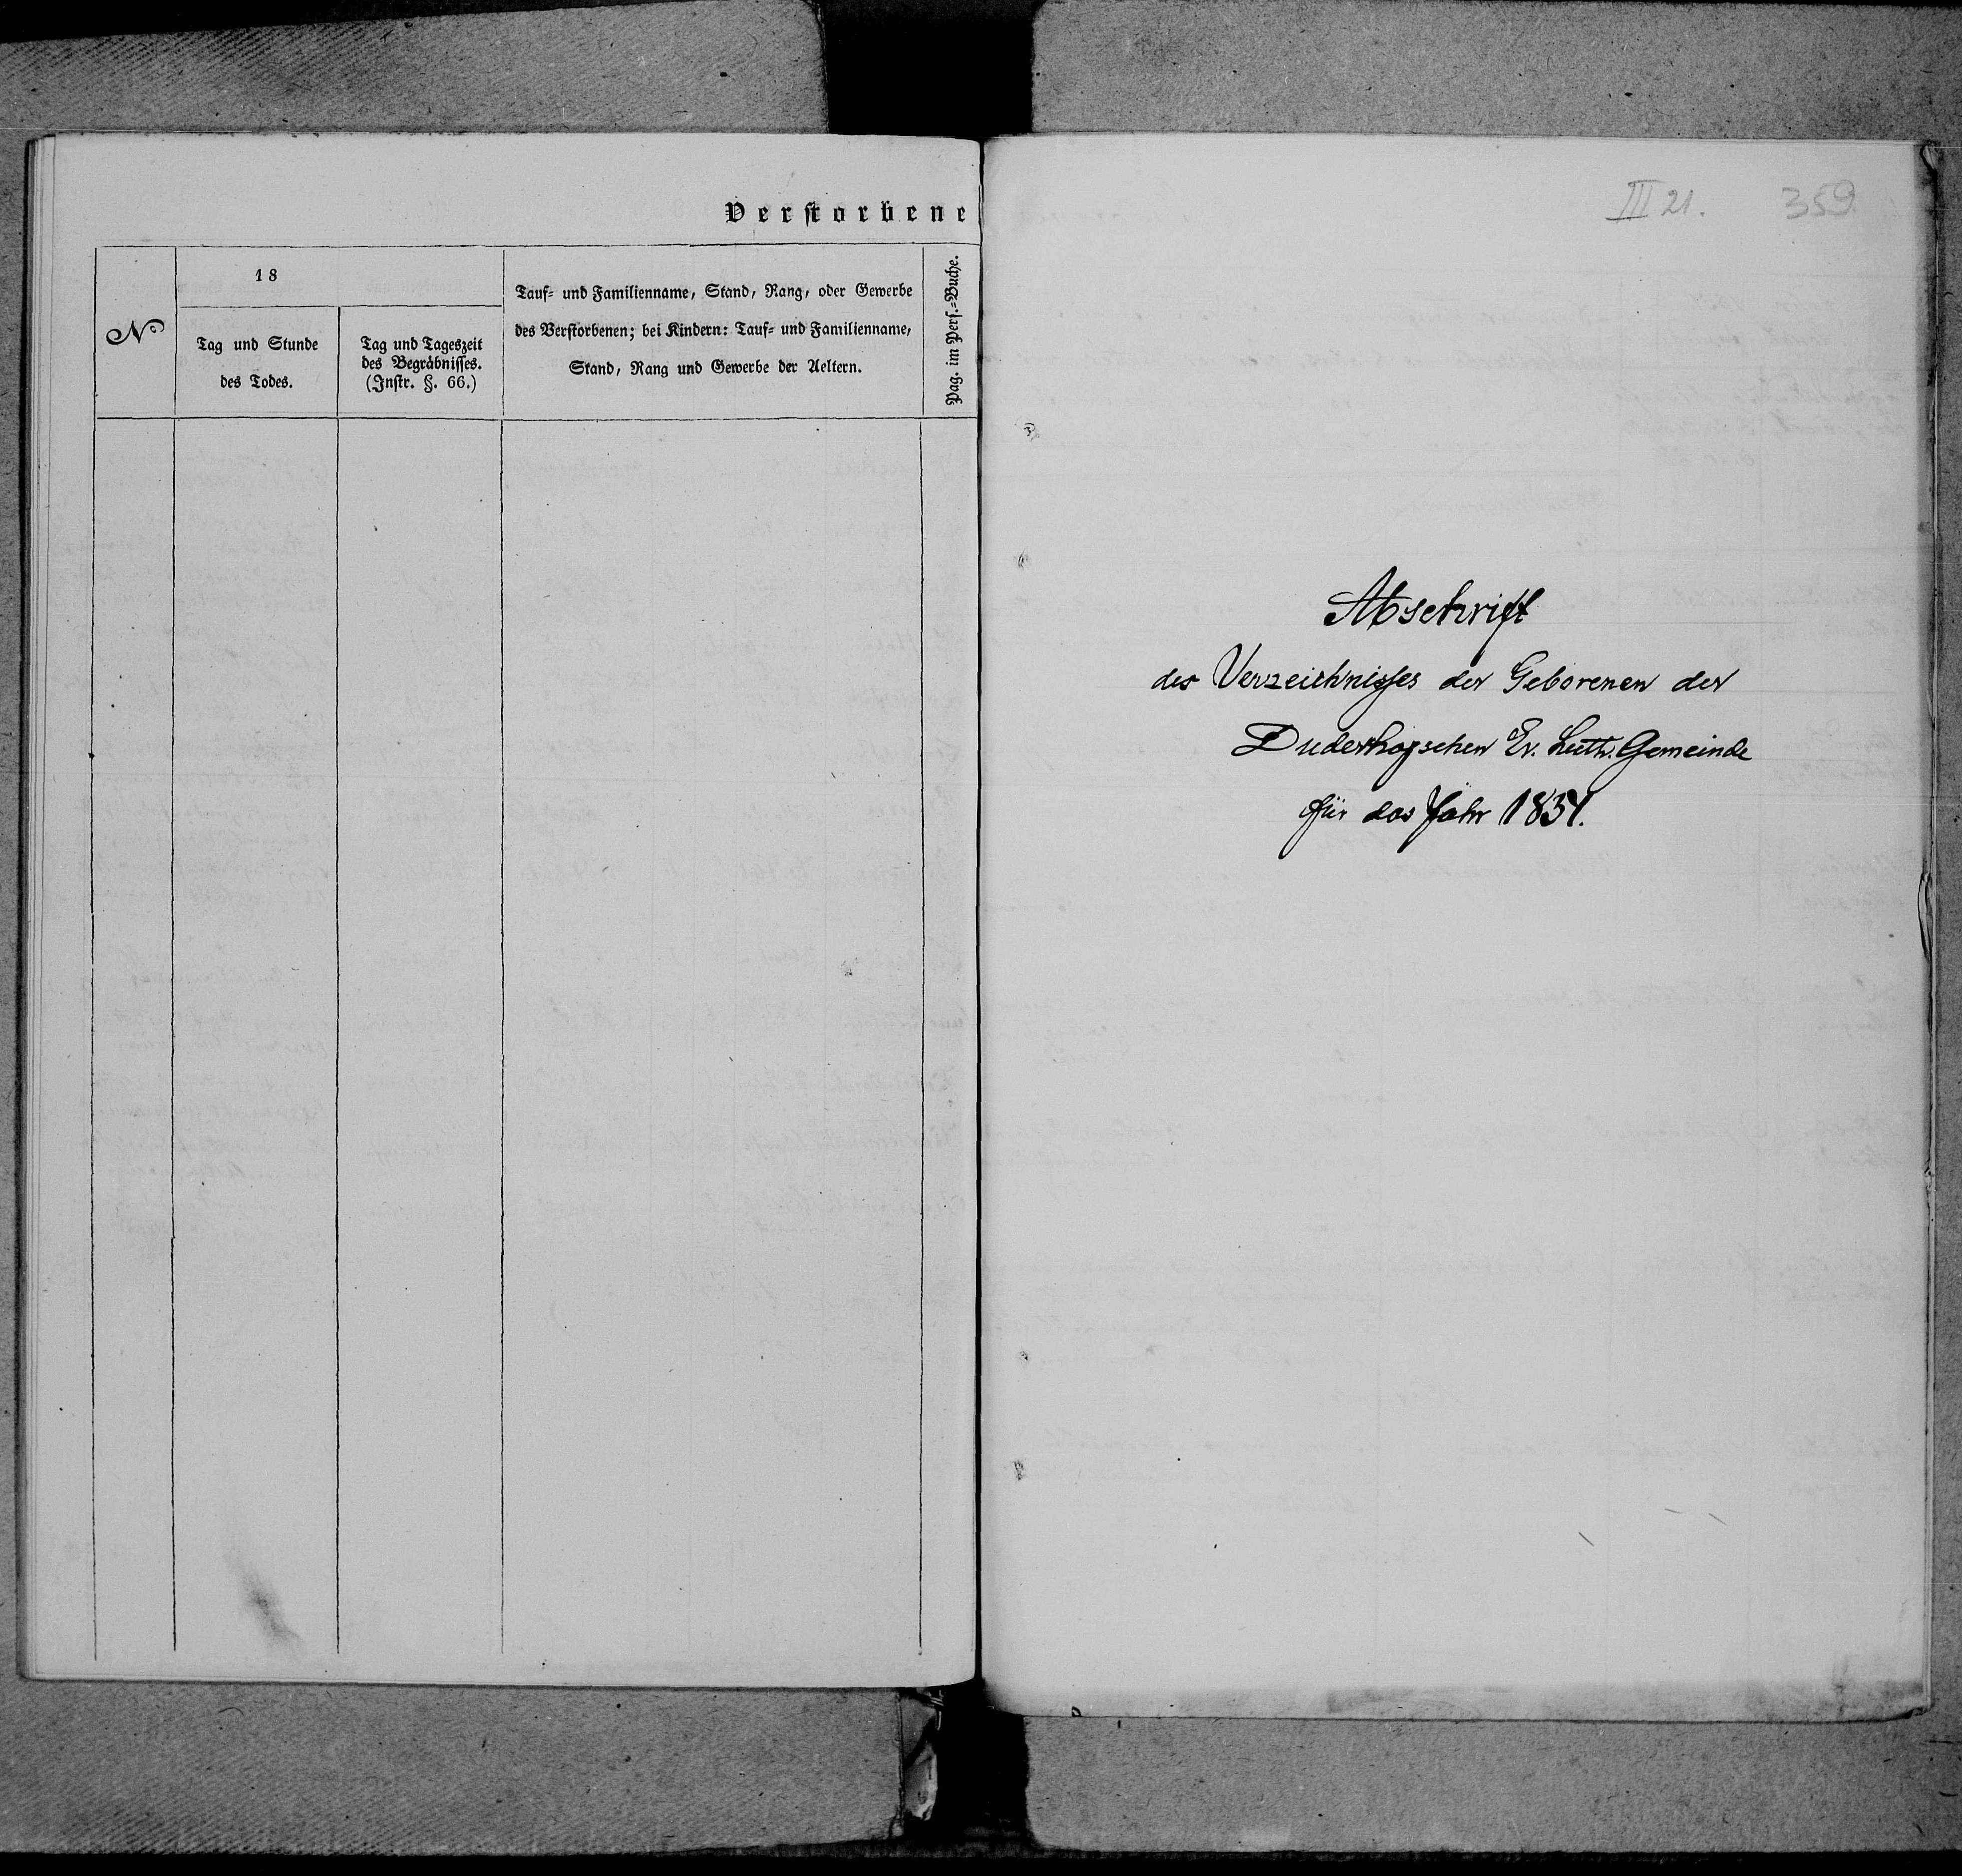 Verstorbene
№
18
Tag und Stunde
des Todes.
Tag und Tageszeit
des Begräbnisses.
(Instr. §. 66.)
Tauf- und Familienname, Stand, Rang, oder Gewerbe
des Verstorbenen; bei Kindern: Tauf- und Familienname,
Stand, Rang und Gewerbe der Aeltern.
Pag. im Pers.-Buche.
III 21. 359
Abschrift
des Verzeichnisses der Geborenen der
Ev. Luth. Gemeinde
für das Jahr